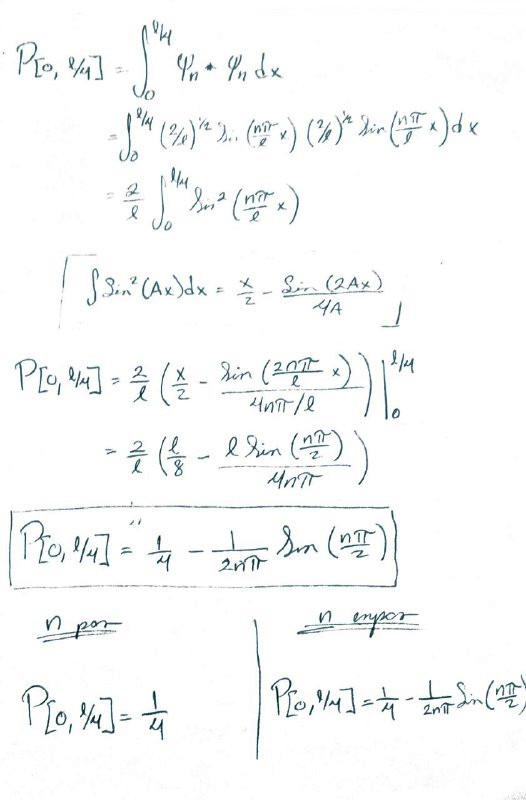 P[0, l/4] = ∫₀^{l/4} φₙ * φₙ dx
= ∫₀^{l/4} (2/l)^{1/2} Sin (nπ/l x) (2/l)^{1/2} Sin (nπ/l x) dx
= 2/l ∫₀^{l/4} Sen² (nπ/l x)
∫ Sin² (Ax) dx = x/2 - Sin (2Ax)/4A
P[0, l/4] = 2/l (x/2 - Sin (2nπ/l x)/(4nπ/l)) |₀^{l/4}
= 2/l (l/8 - l Sin (nπ/2)/4nπ)
P[0, l/4] = 1/4 - 1/2nπ Sen (nπ/2)
n par
n impar
P[0, l/4] = 1/4
P[0, l/4] = 1/4 - 1/2nπ Sin (nπ/2)